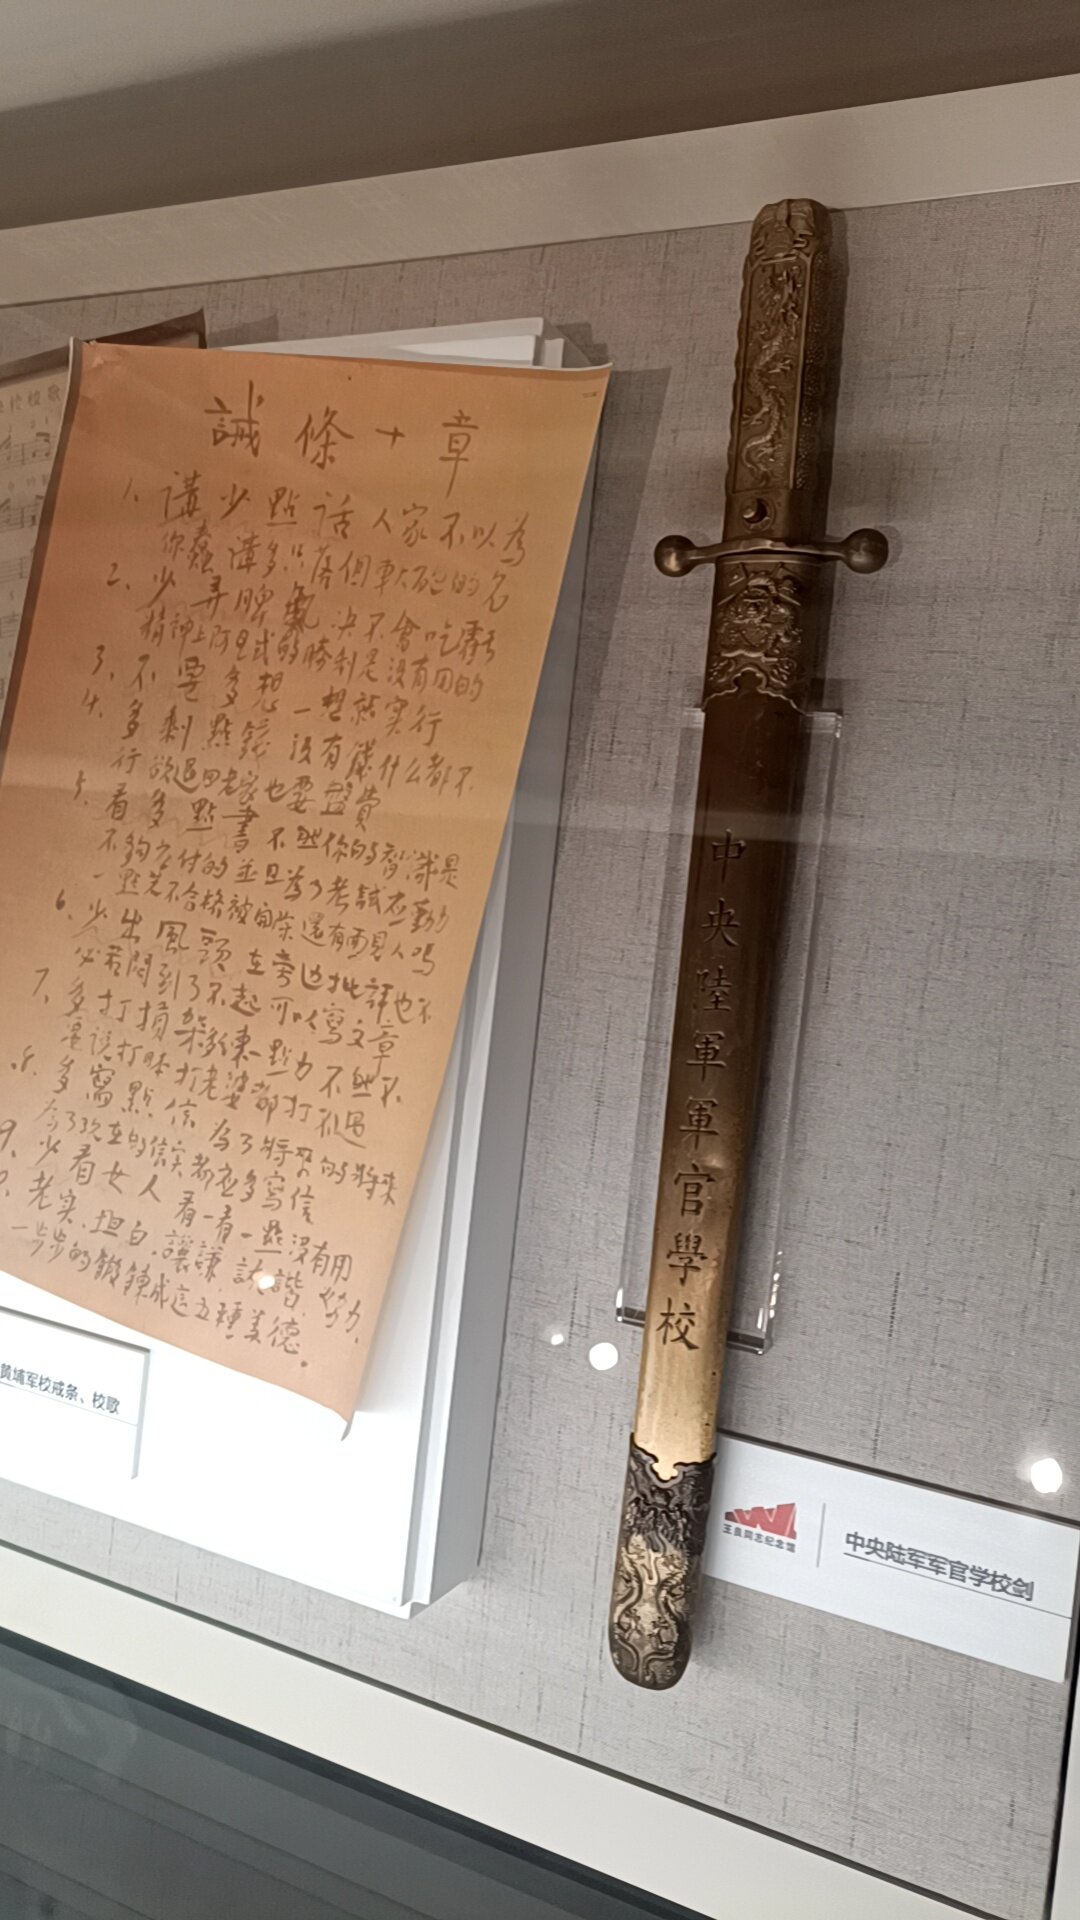 誡條十章
1、講少點話人家不以為
你蠢講多只落個車大砲的名
2、少弄脾氣決不會吃虧
精神上阿Q式的勝利是没有用的
3、不要多想一想就實行
4、多剩點錢没有錢什么都不
行欲退回老家也要盤費
5、看多點書不然你的智識是
不夠应付的並且為了考試不動
一點先不合格被開除還有面見人嗎
6、少出風頭在旁边批評也不
必若悶到了不起可以寫文章
7、多打損架多練一點力不然不
要说打日本打老婆都打不過
8、多寫點信為了將來的將來
為了现在的信实都应多寫信
9、少看女人看一看一點没有用
老实、坦白、讓謙、詼諧、努力、
一步步的鍛鍊成這五種美德。
中央陸軍軍官學校
黄埔军校戒条、校歌
王良同志纪念馆
中央陆军军官学校剑